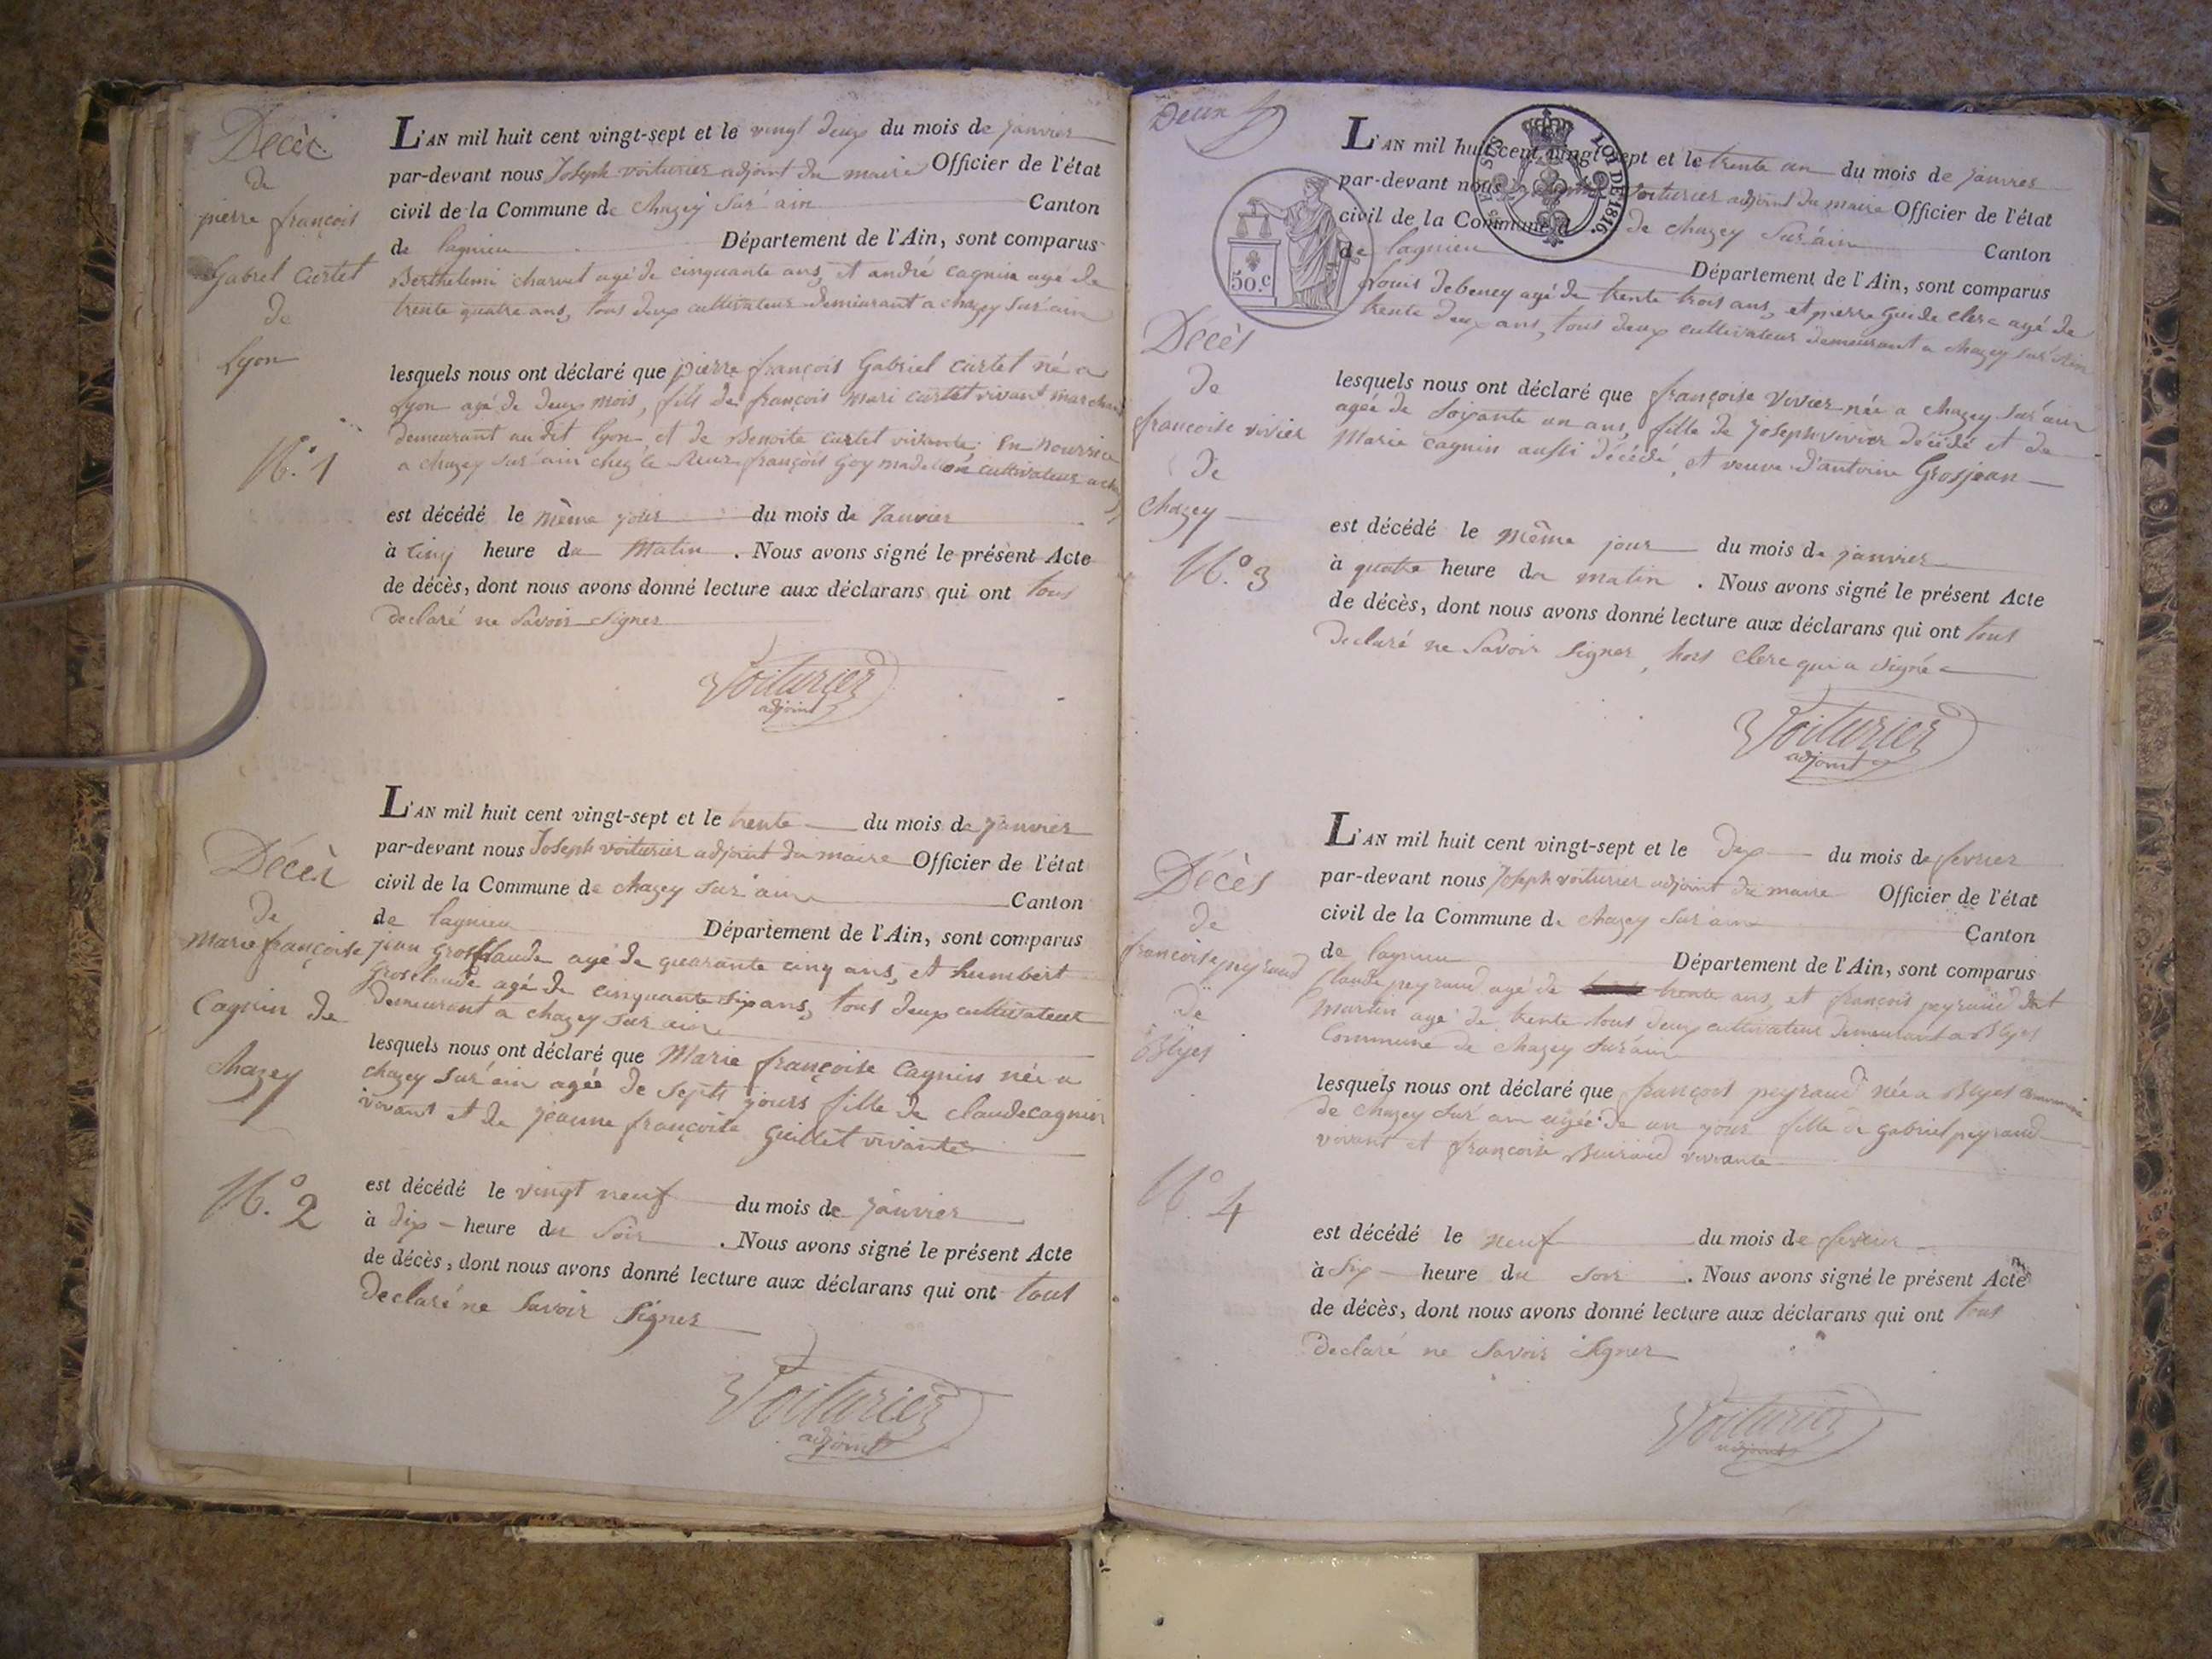 Décès
de
pierre françois
Gabriel Curtet
de
Lyon
N.º 1
L'AN mil huit cent vingt-sept et le vingt deux du mois de janvier
par-devant nous Joseph voiturier adjoint du maire Officier de l'état
civil de la Commune de chazey sur ain Canton
de lagnieu Département de l'Ain, sont comparus
Berthelemi charvet agé de cinquante ans, et andré cagnin agé de
trente quatre ans, tous deux cultivateur demeurant a chazey sur ain
lesquels nous ont déclaré que pierre françois Gabriel curtet né a
Lyon agé de deux mois, fils de françois mari curtet vivant marchand
demeurant au dit lyon, et de Benoite curtet vivante, en nourrice
a chazey sur ain chez le sieur françois Goy madellon cultivateur a
est décédé le même jour du mois de Janvier
à cinq heure du matin . Nous avons signé le présent Acte
de décès, dont nous avons donné lecture aux déclarans qui ont tous
declaré ne savoir signer
Voiturier
adjoint
Décès
de
Marie françoise
Cagnin de
chazey
N.º 2
L'AN mil huit cent vingt-sept et le trente du mois de janvier
par-devant nous Joseph voiturier adjoint du maire Officier de l'état
civil de la Commune de chazey sur ain Canton
de lagnieu Département de l'Ain, sont comparus
jean Grosclaude agé de quarante cinq ans, et humbert
Grosclaude agé de cinquante six ans, tous deux cultivateur
demeurant a chazey sur ain
lesquels nous ont déclaré que Marie françoise Cagnin née a
chazey sur ain agée de septs jours fille de claude cagnin
vivant et de jeanne françoise Guillet vivante
est décédé le vingt neuf du mois de janvier
à dix heure du soir . Nous avons signé le présent Acte
de décès, dont nous avons donné lecture aux déclarans qui ont tous
declaré ne savoir signer
Voiturier
adjoint
Deux
50.C
LOI DE 1816.
Décès
de
francoise vivier
de
chazey
N.º 3
L'AN mil huit cent vingt-sept et le trente un du mois de janvier
par-devant nous voiturier adjoint du maire Officier de l'état
civil de la Commune de chazey sur ain Canton
de lagnieu Département de l'Ain, sont comparus
Louis debeney agé de trente trois ans, et pierre Guide clerc agé de
trente deux ans, tous deux cultivateur demeurant a chazey sur ain
lesquels nous ont déclaré que françoise vivier née a chazey sur ain
agée de soixante un ans, fille de Joseph vivier décédé et de
Marie cagnin aussi décédé, et veuve d'antoine Grosjean
est décédé le même jour du mois de janvier
à quatre heure du matin . Nous avons signé le présent Acte
de décès, dont nous avons donné lecture aux déclarans qui ont tous
declaré ne savoir signer, hors clerc qui a signé
Voiturier
adjoint
Décès
de
francoise peyraud
de
Blyes
N.º 4
L'AN mil huit cent vingt-sept et le dix du mois de fevrier
par-devant nous Joseph voiturier adjoint du maire Officier de l'état
civil de la Commune de chazey sur ain Canton
de lagnieu Département de l'Ain, sont comparus
claude peyraud agé de trente ans, et françois peyraud dit
martin agé de trente tous deux cultivateur demeurant a Blyes
Commune de chazey sur ain
lesquels nous ont déclaré que françois peyraud née a Blyes commune
de chazey sur ain agée de un jour fille de gabriel peyraud
vivant et françoise vivante
est décédé le neuf du mois de fevrier
à six heure du soir . Nous avons signé le présent Acte
de décès, dont nous avons donné lecture aux déclarans qui ont tous
declaré ne savoir signer
Voiturier
adjoint